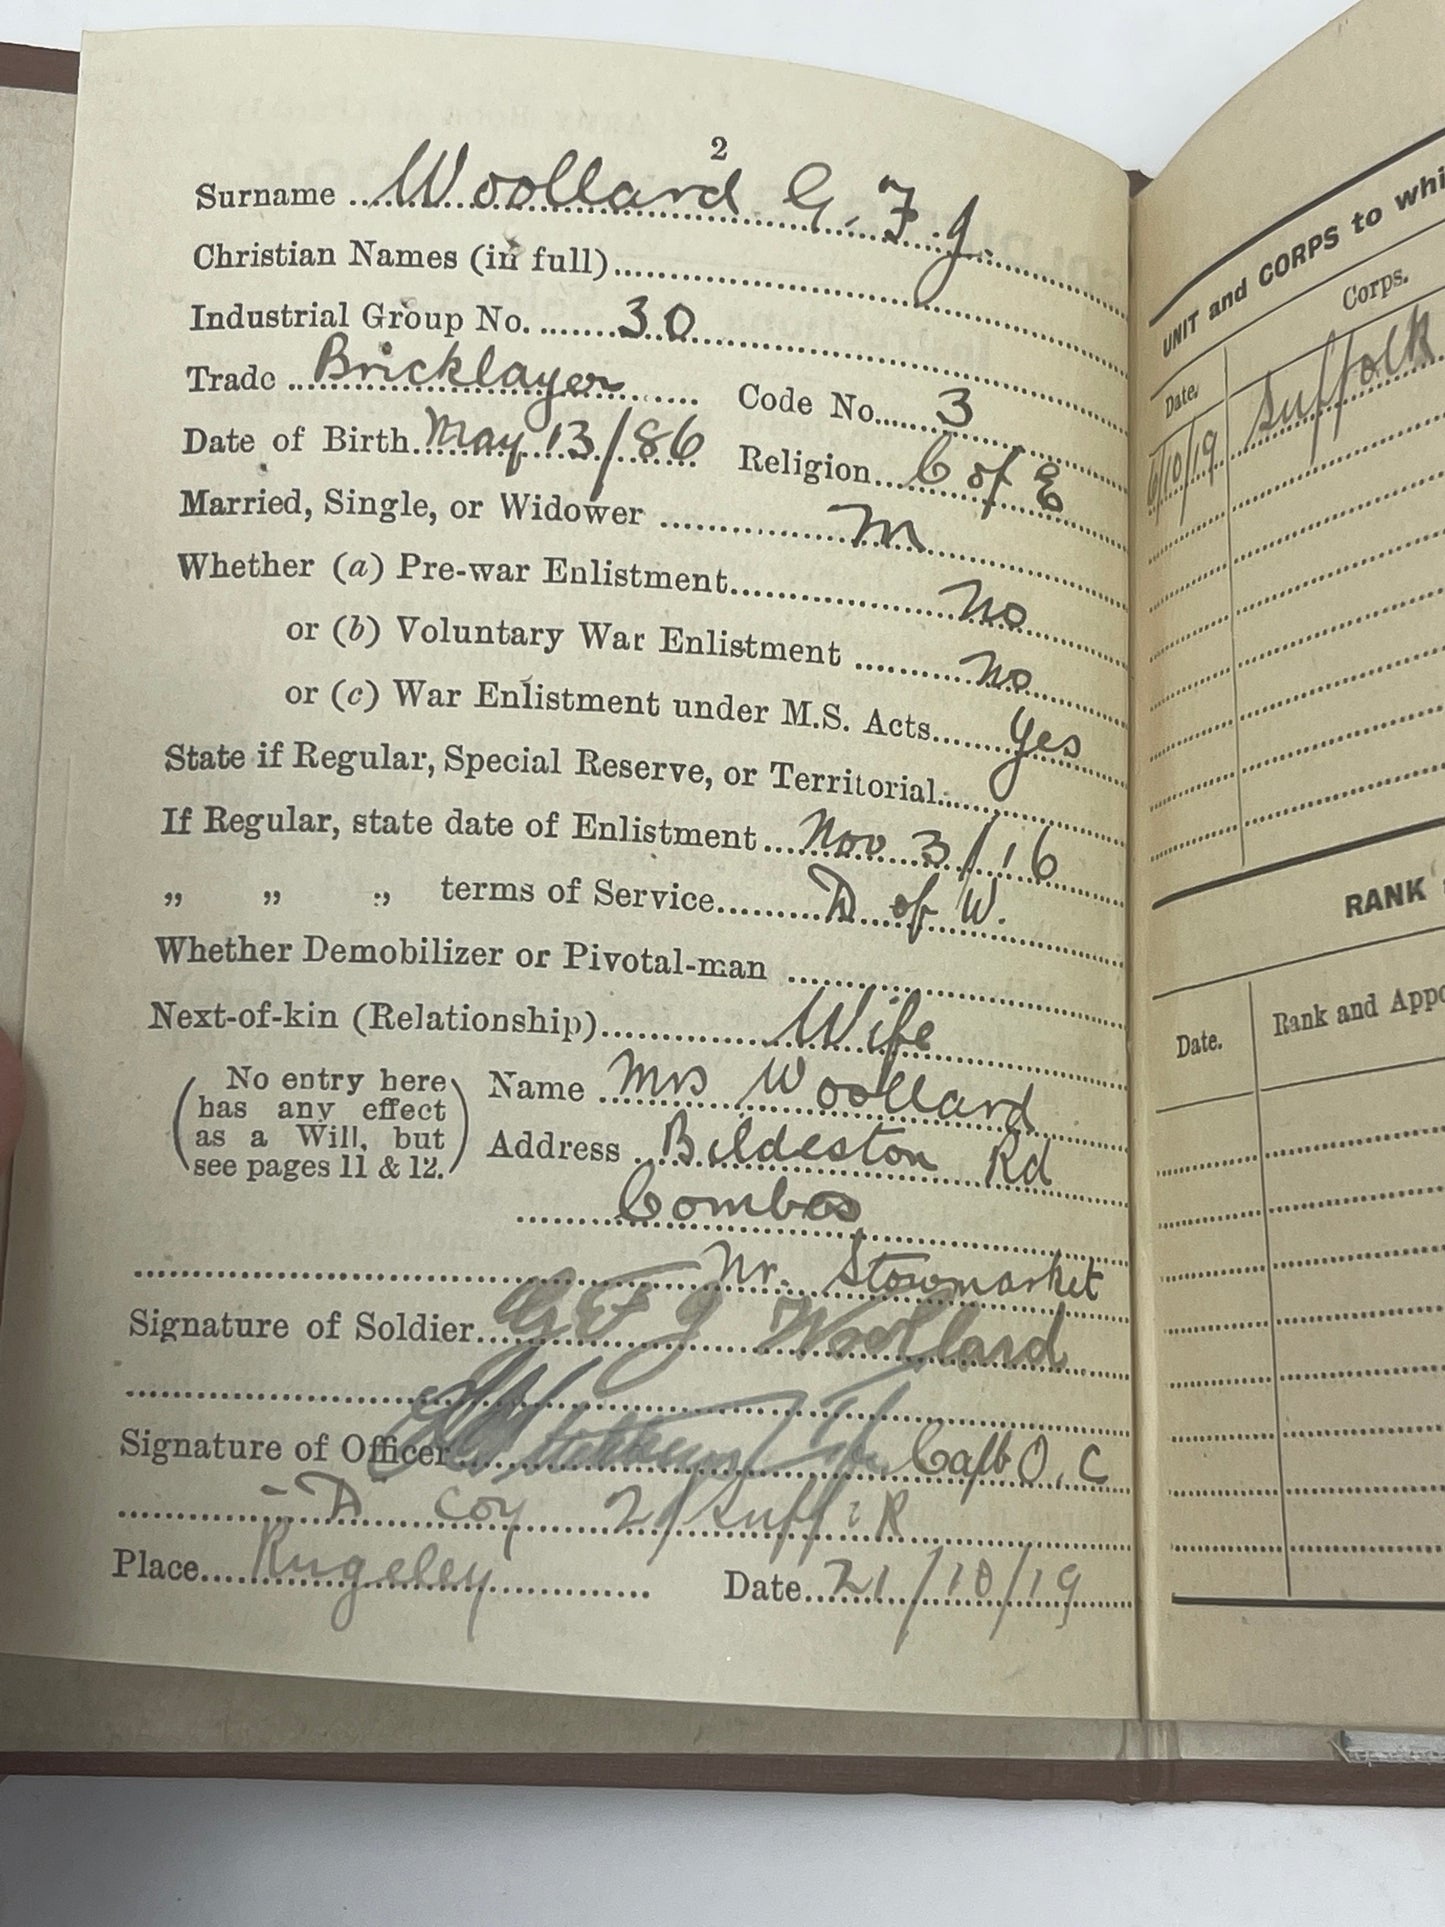 2
Surname Woollard G. F. J.
Christian Names (in full)
Industrial Group No. 30
Trade Bricklayer Code No. 3
Date of Birth May 13/86 Religion C of E
Married, Single, or Widower M
Whether (a) Pre-war Enlistment No
or (b) Voluntary War Enlistment No
or (c) War Enlistment under M.S. Acts yes
State if Regular, Special Reserve, or Territorial
If Regular, state date of Enlistment Nov 3/16
„ „ „ terms of Service D of W.
Whether Demobilizer or Pivotal-man
Next-of-kin (Relationship) Wife
(No entry here has any effect as a Will, but see pages 11 & 12.)
Name Mrs Woollard
Address Bildeston Rd
Combs
Nr. Stowmarket
Signature of Soldier G F J Woollard
Signature of Officer Capt O. C
D Coy 2/Suff: R
Place Rugeley Date 21/10/19
UNIT and CORPS to whi
Date. Corps.
6/10/19 Suffolk
RANK
Date. Rank and Appo